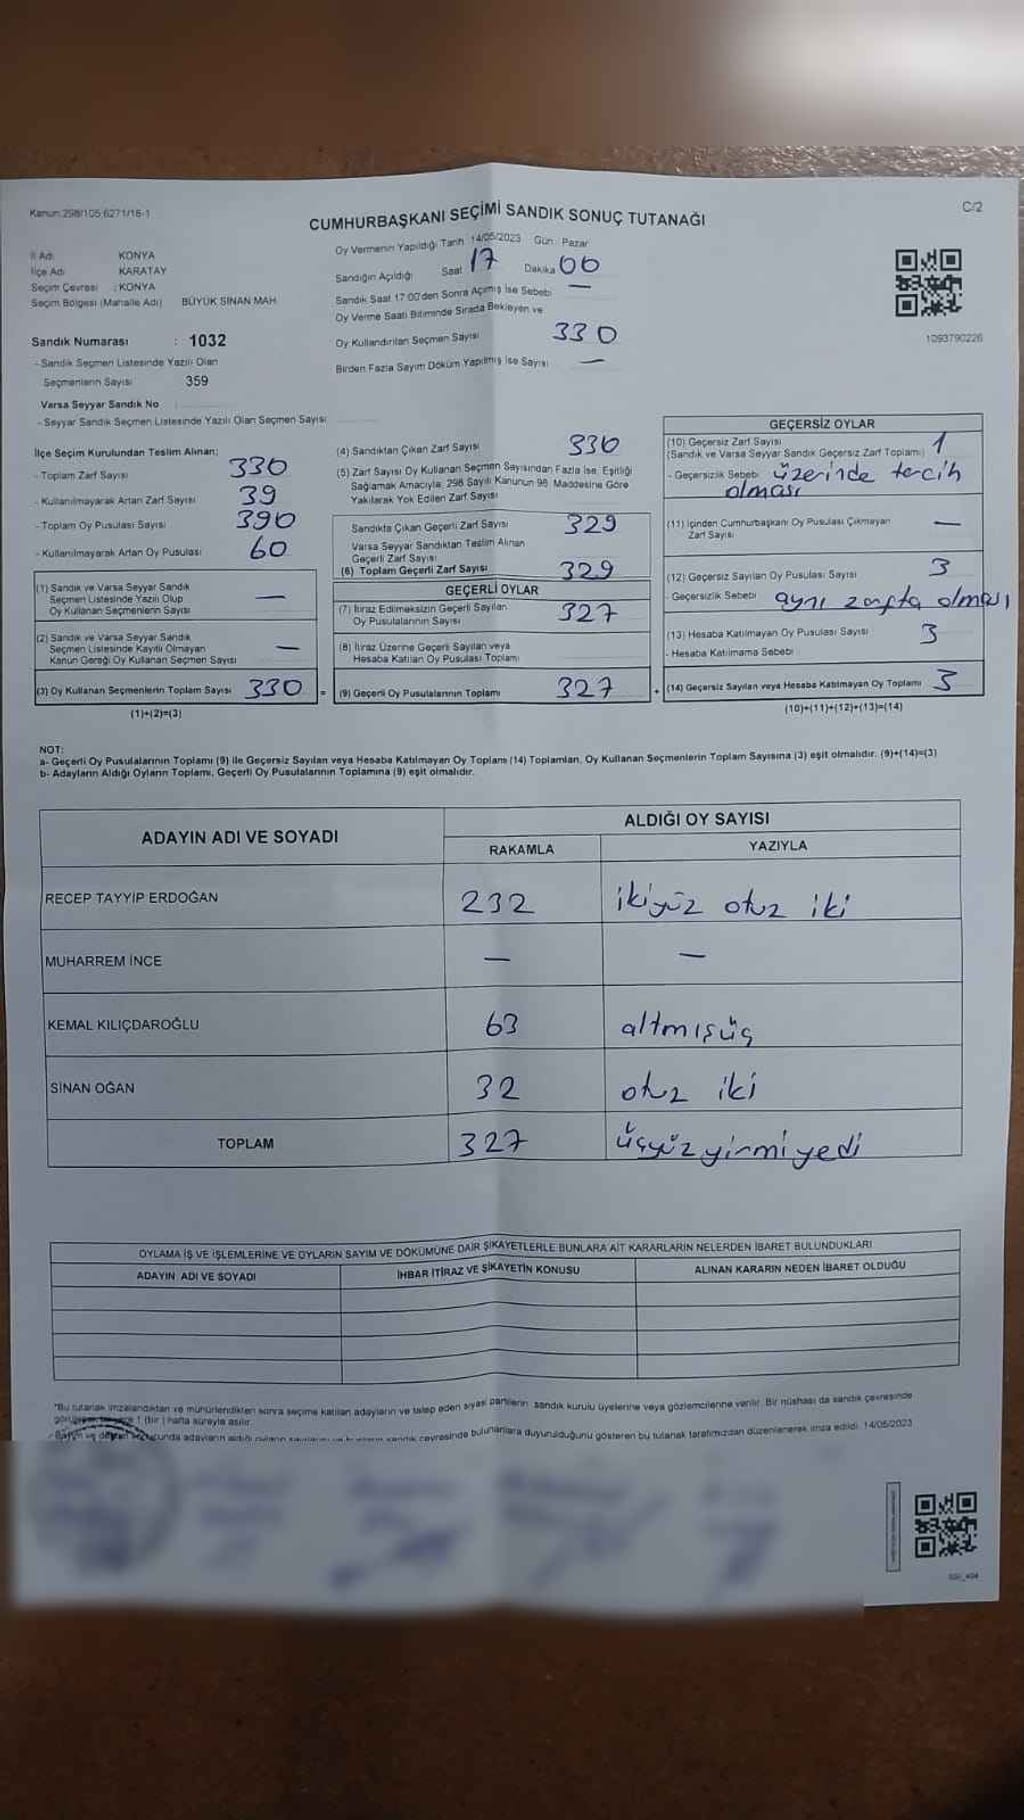 Kanun:298/105 6271/16-1
C/2
CUMHURBAŞKANI SEÇİMİ SANDIK SONUÇ TUTANAĞI
İl Adı KONYA
İlçe Adı KARATAY
Seçim Çevresi : KONYA
Seçim Bölgesi (Mahalle Adı) BÜYÜK SİNAN MAH.
Sandık Numarası : 1032
- Sandık Seçmen Listesinde Yazılı Olan
Seçmenlerin Sayısı 359
Varsa Seyyar Sandık No
- Seyyar Sandık Seçmen Listesinde Yazılı Olan Seçmen Sayısı
Oy Vermenin Yapıldığı Tarih 14/05/2023 Gün: Pazar
Sandığın Açıldığı Saat 17 Dakika 00
Sandık Saat 17:00'den Sonra Açılmış İse Sebebi —
Oy Verme Saati Bitiminde Sırada Bekleyen ve
Oy Kullandırılan Seçmen Sayısı 330
Birden Fazla Sayım Döküm Yapılmış İse Sayısı —
1093790226
İlçe Seçim Kurulundan Teslim Alınan;
- Toplam Zarf Sayısı 330
- Kullanılmayarak Artan Zarf Sayısı 39
- Toplam Oy Pusulası Sayısı 390
- Kullanılmayarak Artan Oy Pusulası 60
(1) Sandık ve Varsa Seyyar Sandık
Seçmen Listesinde Yazılı Olup
Oy Kullanan Seçmenlerin Sayısı —
(2) Sandık ve Varsa Seyyar Sandık
Seçmen Listesinde Kayıtlı Olmayan
Kanun Gereği Oy Kullanan Seçmen Sayısı —
(3) Oy Kullanan Seçmenlerin Toplam Sayısı 330 =
(1)+(2)=(3)
(4) Sandıktan Çıkan Zarf Sayısı 330
(5) Zarf Sayısı Oy Kullanan Seçmen Sayısından Fazla İse, Eşitliği
Sağlamak Amacıyla, 298 Sayılı Kanunun 98. Maddesine Göre
Yakılarak Yok Edilen Zarf Sayısı
Sandıkta Çıkan Geçerli Zarf Sayısı 329
Varsa Seyyar Sandıktan Teslim Alınan
Geçerli Zarf Sayısı
(6) Toplam Geçerli Zarf Sayısı 329
GEÇERLİ OYLAR
(7) İtiraz Edilmeksizin Geçerli Sayılan
Oy Pusulalarının Sayısı 327
(8) İtiraz Üzerine Geçerli Sayılan veya
Hesaba Katılan Oy Pusulası Toplamı
(9) Geçerli Oy Pusulalarının Toplamı 327 +
GEÇERSİZ OYLAR
(10) Geçersiz Zarf Sayısı 1
(Sandık ve Varsa Seyyar Sandık Geçersiz Zarf Toplamı)
- Geçersizlik Sebebi üzerinde tercih
olması
(11) İçinden Cumhurbaşkanı Oy Pusulası Çıkmayan
Zarf Sayısı —
(12) Geçersiz Sayılan Oy Pusulası Sayısı 3
- Geçersizlik Sebebi aynı zarfta olması
(13) Hesaba Katılmayan Oy Pusulası Sayısı 3
- Hesaba Katılmama Sebebi
(14) Geçersiz Sayılan veya Hesaba Katılmayan Oy Toplamı 3
(10)+(11)+(12)+(13)=(14)
NOT:
a- Geçerli Oy Pusulalarının Toplamı (9) ile Geçersiz Sayılan veya Hesaba Katılmayan Oy Toplamı (14) Toplamları, Oy Kullanan Seçmenlerin Toplam Sayısına (3) eşit olmalıdır. (9)+(14)=(3)
b- Adayların Aldığı Oyların Toplamı, Geçerli Oy Pusulalarının Toplamına (9) eşit olmalıdır.
ADAYIN ADI VE SOYADI
ALDIĞI OY SAYISI
RAKAMLA YAZIYLA
RECEP TAYYİP ERDOĞAN 232 ikiyüz otuz iki
MUHARREM İNCE — —
KEMAL KILIÇDAROĞLU 63 altmışüç
SİNAN OĞAN 32 otuz iki
TOPLAM 327 üçyüz yirmi yedi
OYLAMA İŞ VE İŞLEMLERİNE VE OYLARIN SAYIM VE DÖKÜMÜNE DAİR ŞİKAYETLERLE BUNLARA AİT KARARLARIN NELERDEN İBARET BULUNDUKLARI
ADAYIN ADI VE SOYADI İHBAR İTİRAZ VE ŞİKAYETİN KONUSU ALINAN KARARIN NEDEN İBARET OLDUĞU
*Bu tutanak imzalandıktan ve mühürlendikten sonra seçime katılan adayların ve talep eden siyasi partilerin sandık kurulu üyelerine veya gözlemcilerine verilir. Bir nüshası da sandık çevresinde
1 (bir) hafta süreyle asılır.
adayların aldığı oyların sandık çevresinde bulunanlara duyurulduğunu gösteren bu tutanak tarafımızdan düzenlenerek imza edildi. 14/05/2023